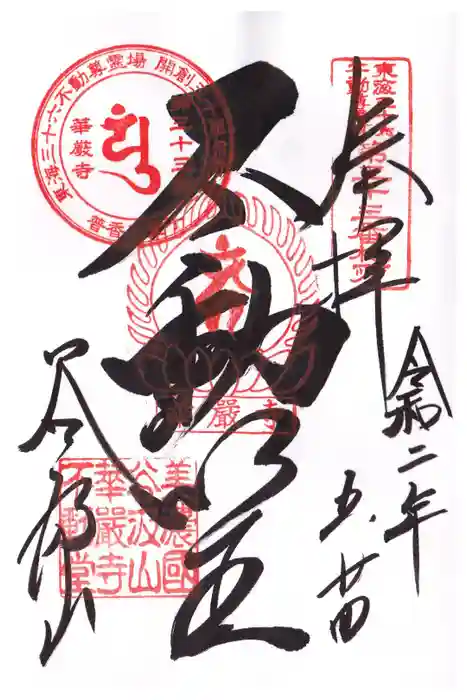 奉拝
令和二年
五、廿四
不動明王
谷汲山
東海三十六不動尊霊場 開創
第三十三
華厳寺
東海三十六
不動尊
第三十三番札所
華嚴寺
美濃國
谷汲山
華嚴寺
不動堂